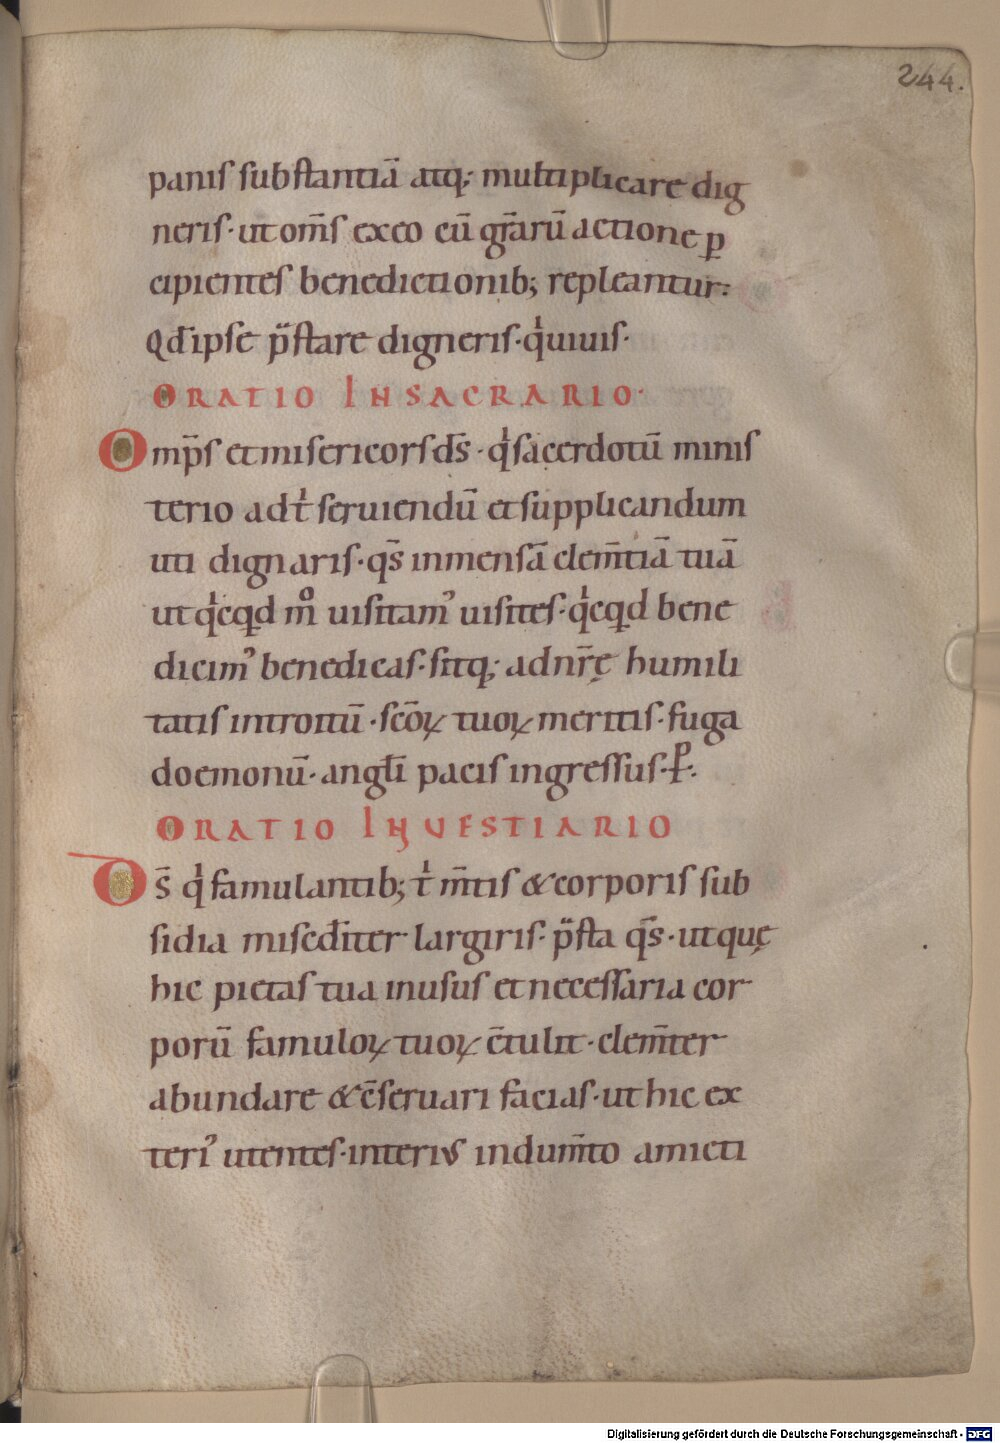 244.
panis substantiā atq; multiplicare dig
neris· ut om̄s ex eo cū gr̄arū actione ꝑ
cipientes benedictionib; repleantur:
Qđ ipse p̄stare digneris· qͥ uiuis·
ORATIO IN SACRARIO·
Omp̄s et misericors d̄s· qͥ sacerdotū minis
terio ad tͥ seruiendū et supplicandum
uti dignaris· q̄s inmensā clem̄tiā tuā
ut qͥcqͥd m̊ uisitam᾽ uisites· qͥcqͥd bene
dicim᾽ benedicas· sitq; ad nr̄ę humili
tatis introitū· sc̄oꝝ tuoꝝ meritis· fuga
doemonū· angl̄i pacis ingressus· P·
ORATIO IN VESTIARIO
D̄s qͥ famulantib; tͥ m̄tis & corporis sub
sidia mised̄iter largiris· p̄sta q̄s· ut quę
hic pietas tua in usus et necessaria cor
porū famuloꝝ tuoꝝ c̄tulit· clem̄ter
abundare & c̄seruari facias· ut hic ex
teri᾽ utentes· interius indum̄to amicti
Digitalisierung gefördert durch die Deutsche Forschungsgemeinschaft - DFG